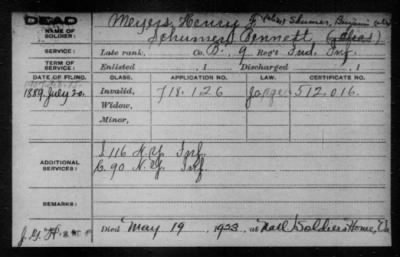 DEAD
NAME OF SOLDIER: Meyers, Henry F. (alias) Shumer, Benjamin (alias)
Schumer Bennett (alias)
SERVICE: Late rank, Co. D, 9 Reg't Ind. Inf.
TERM OF SERVICE: Enlisted , 1 Discharged , 1
DATE OF FILING. CLASS. APPLICATION NO. LAW. CERTIFICATE NO.
1889, July 20. Invalid, 718.126 512.016.
Widow,
Minor,
ADDITIONAL SERVICES: I 116 N.Y. Inf.
C. 90 N.Y. Inf.
REMARKS:
Died May 19 1923 at Natl Soldiers Home, Va